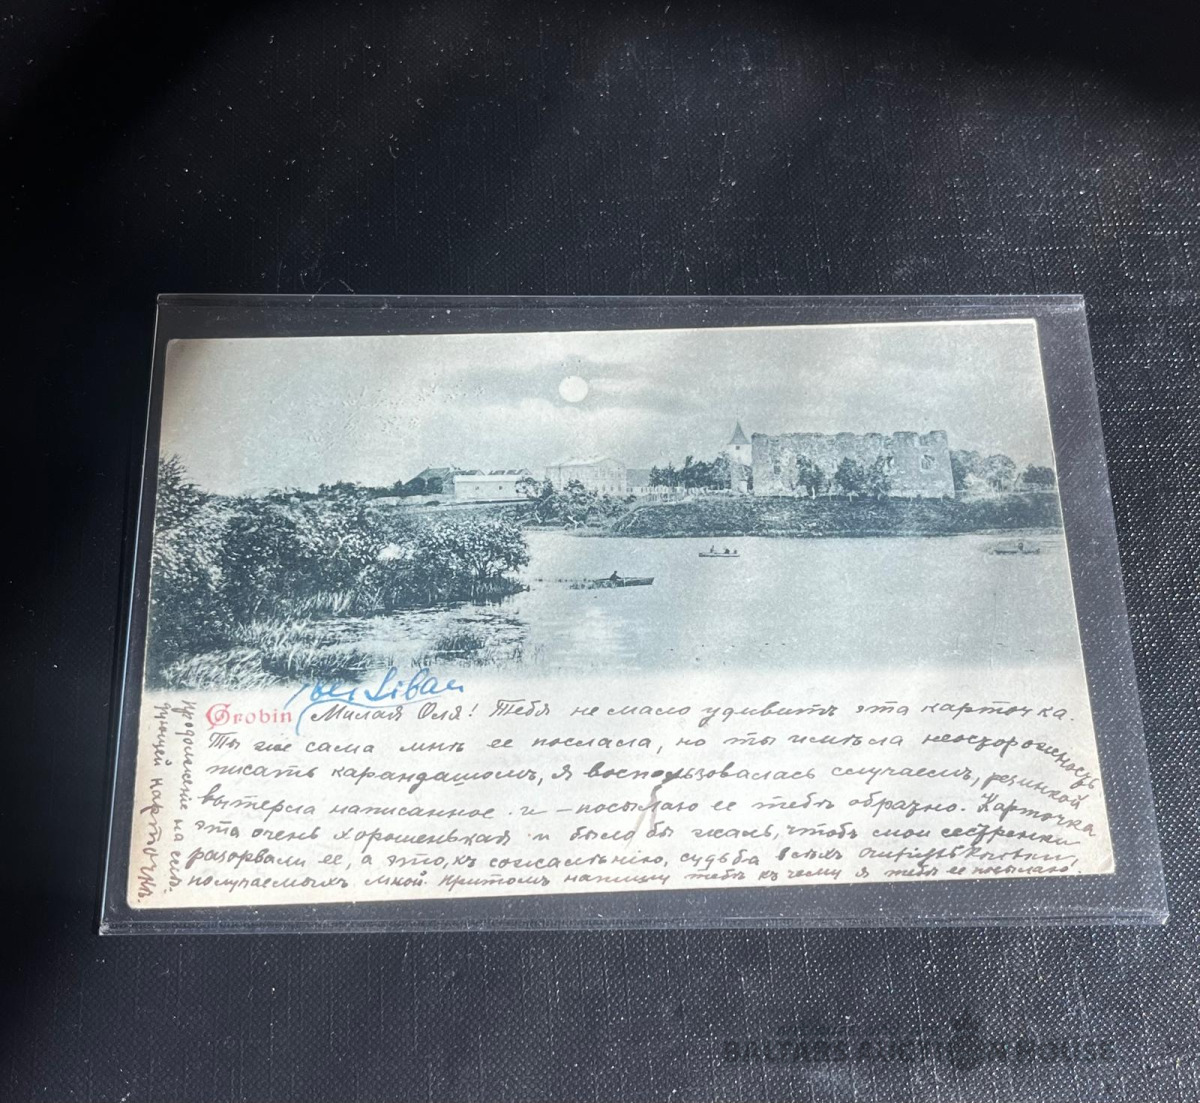 bei Libau
Grobin Милая Оля! Тебя не мало удивитъ эта карточка.
Ты же сама мнѣ ее послала, но ты имѣла неосторожность
писать карандашомъ, я воспользовалась случаемъ, резинкой
вытерла написанное и – посылаю ее тебѣ обратно. Карточка
эта очень хорошенькая и было бы жаль, чтобъ мои сестренки
разорвали ее, а это, къ сожалѣнію, судьба всѣхъ
получаемыхъ мной. притомъ напишу тебѣ къ чему я тебѣ ее посылаю.
продолженіе на слѣ-
дующей карточкѣ.
BALTARS AUCTION HOUSE